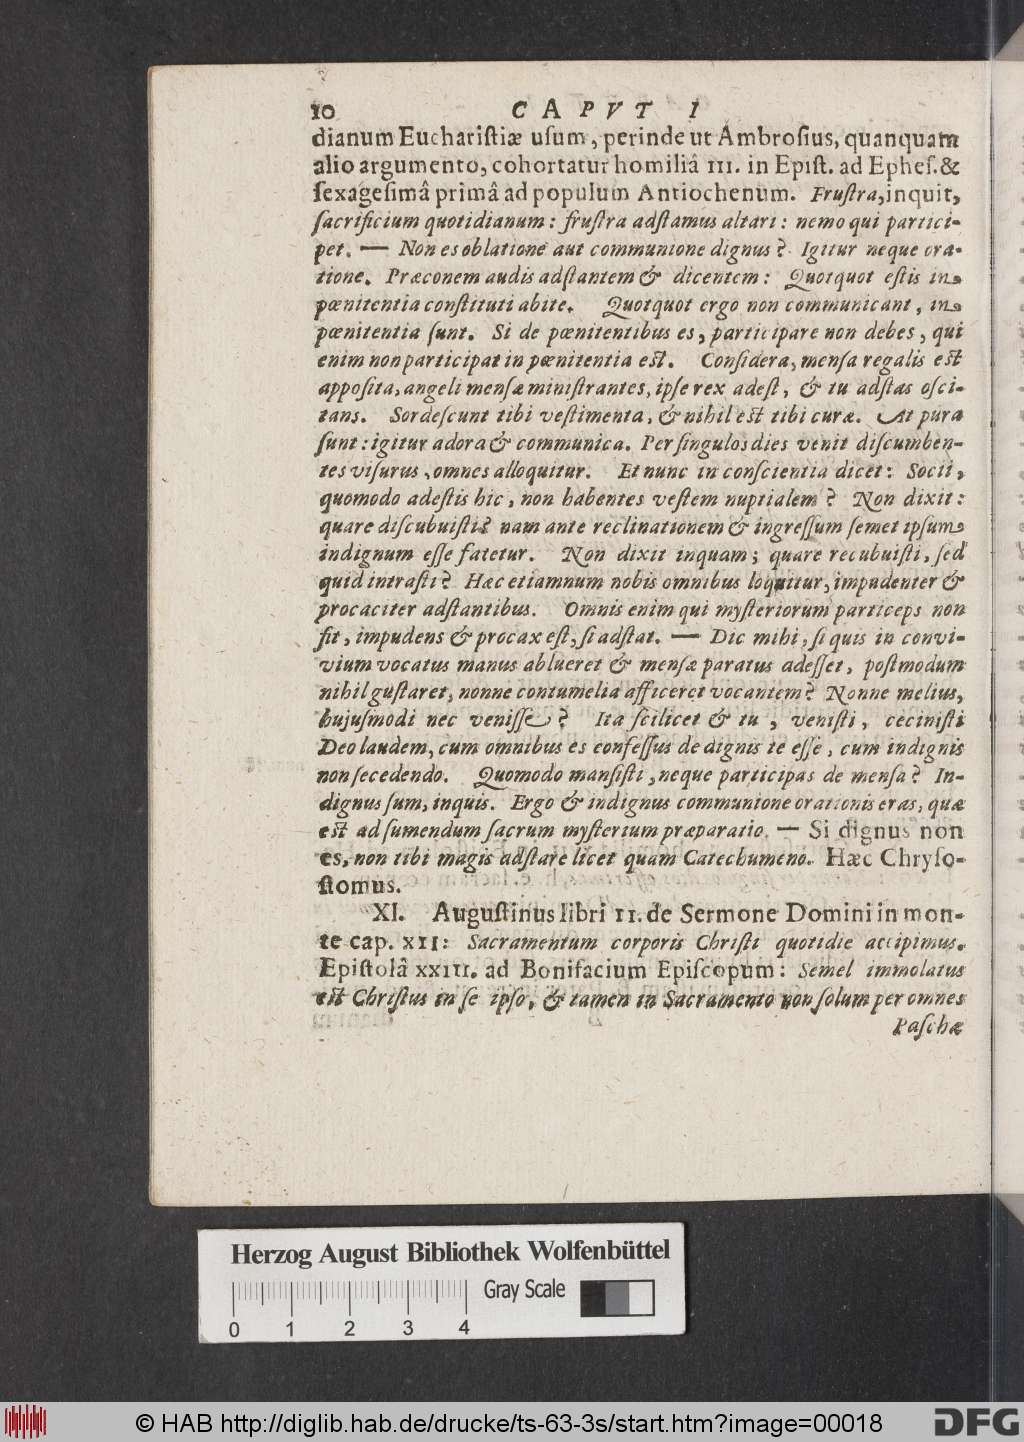 10 CAPVT I
dianum Euchariſtiæ uſum, perinde ut Ambroſius, quanquam
alio argumento, cohortatur homiliâ III. in Epiſt. ad Epheſ. &
ſexageſimâ primâ ad populum Antiochenum. Fruſtra, inquit,
ſacrificium quotidianum: fruſtra adſtamus altari: nemo qui partici-
pet. — Non es oblatione aut communione dignus? Igitur neque ora-
tione. Præconem audis adſtantem & dicentem: Quotquot eſtis in
pœnitentia conſtituti abite. Quotquot ergo non communicant, in
pœnitentia ſunt. Si de pœnitentibus es, participare non debes, qui
enim non participat in pœnitentia eſt. Conſidera, menſa regalis eſt
appoſita, angeli menſæ miniſtrantes, ipſe rex adeſt, & tu adſtas oſci-
tans. Sordeſcunt tibi veſtimenta, & nihil eſt tibi curæ. At pura
ſunt: igitur adora & communica. Per ſingulos dies venit diſcumben-
tes viſurus, omnes alloquitur. Et nunc in conſcientia dicet: Socii,
quomodo adeſtis hic, non habentes veſtem nuptialem? Non dixit:
quare diſcubuiſti? nam ante reclinationem & ingreſſum ſemet ipſum
indignum eſſe fatetur. Non dixit inquam; quare recubuiſti, ſed
quid intraſti? Hæc etiamnum nobis omnibus loquitur, impudenter &
procaciter adſtantibus. Omnis enim qui myſteriorum particeps non
fit, impudens & procax eſt, ſi adſtat. — Dic mihi, ſi quis in convi-
vium vocatus manus ablueret & menſæ paratus adeſſet, poſtmodum
nihil guſtaret, nonne contumelia afficeret vocantem? Nonne melius,
hujuſmodi nec veniſſe? Ita ſcilicet & tu, veniſti, ceciniſti
Deo laudem, cum omnibus es confeſſus de dignis te eſſe, cum indignis
non ſecedendo. Quomodo manſiſti, neque participas de menſa? In-
dignus ſum, inquis. Ergo & indignus communione orationis eras, quæ
eſt ad ſumendum ſacrum myſterium præparatio. — Si dignus non
es, non tibi magis adſtare licet quam Catechumeno. Hæc Chryſo-
ſtomus.
XI. Auguſtinus libri II. de Sermone Domini in mon-
te cap. XII: Sacramentum corporis Chriſti quotidie accipimus.
Epiſtolâ XXIII. ad Bonifacium Epiſcopum: Semel immolatus
eſt Chriſtus in ſe ipſo, & tamen in Sacramento non ſolum per omnes
Paſchæ
Herzog August Bibliothek Wolfenbüttel
Gray Scale
0 1 2 3 4
© HAB http://diglib.hab.de/drucke/ts-63-3s/start.htm?image=00018
DFG